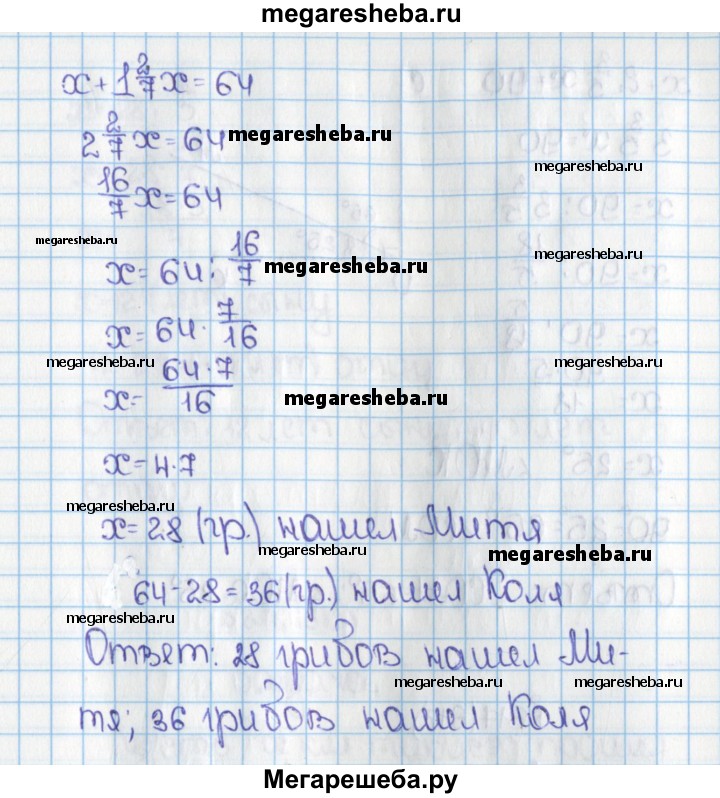 megaresheba.ru
x + 1 2/7 x = 64
2 2/7 x = 64 megaresheba.ru
megaresheba.ru
16/7 x = 64
megaresheba.ru
x = 64 : 16/7 megaresheba.ru
megaresheba.ru
x = 64 · 7/16
megaresheba.ru megaresheba.ru
x = 64·7/16 megaresheba.ru
x = 4·7
megaresheba.ru
x = 28 (гр.) нашел Митя
megaresheba.ru megaresheba.ru
64 - 28 = 36 (гр.) нашел Коля
megaresheba.ru
Ответ: 28 грибов нашел Ми-
megaresheba.ru megaresheba.ru
тя; 36 грибов нашел Коля
Мегарешеба.ру